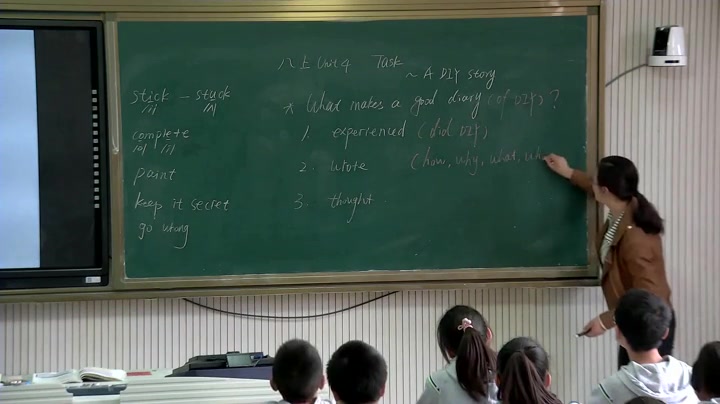 八上 Unit 4 Task
~ A DIY story
stick – stuck
/ɪ/ /ʌ/
complete
/ə/ /iː/
paint
keep it secret
go wrong
* What makes a good diary (of DIY)?
1. experienced (did DIY)
2. wrote (how, why, what, wh
3. thought